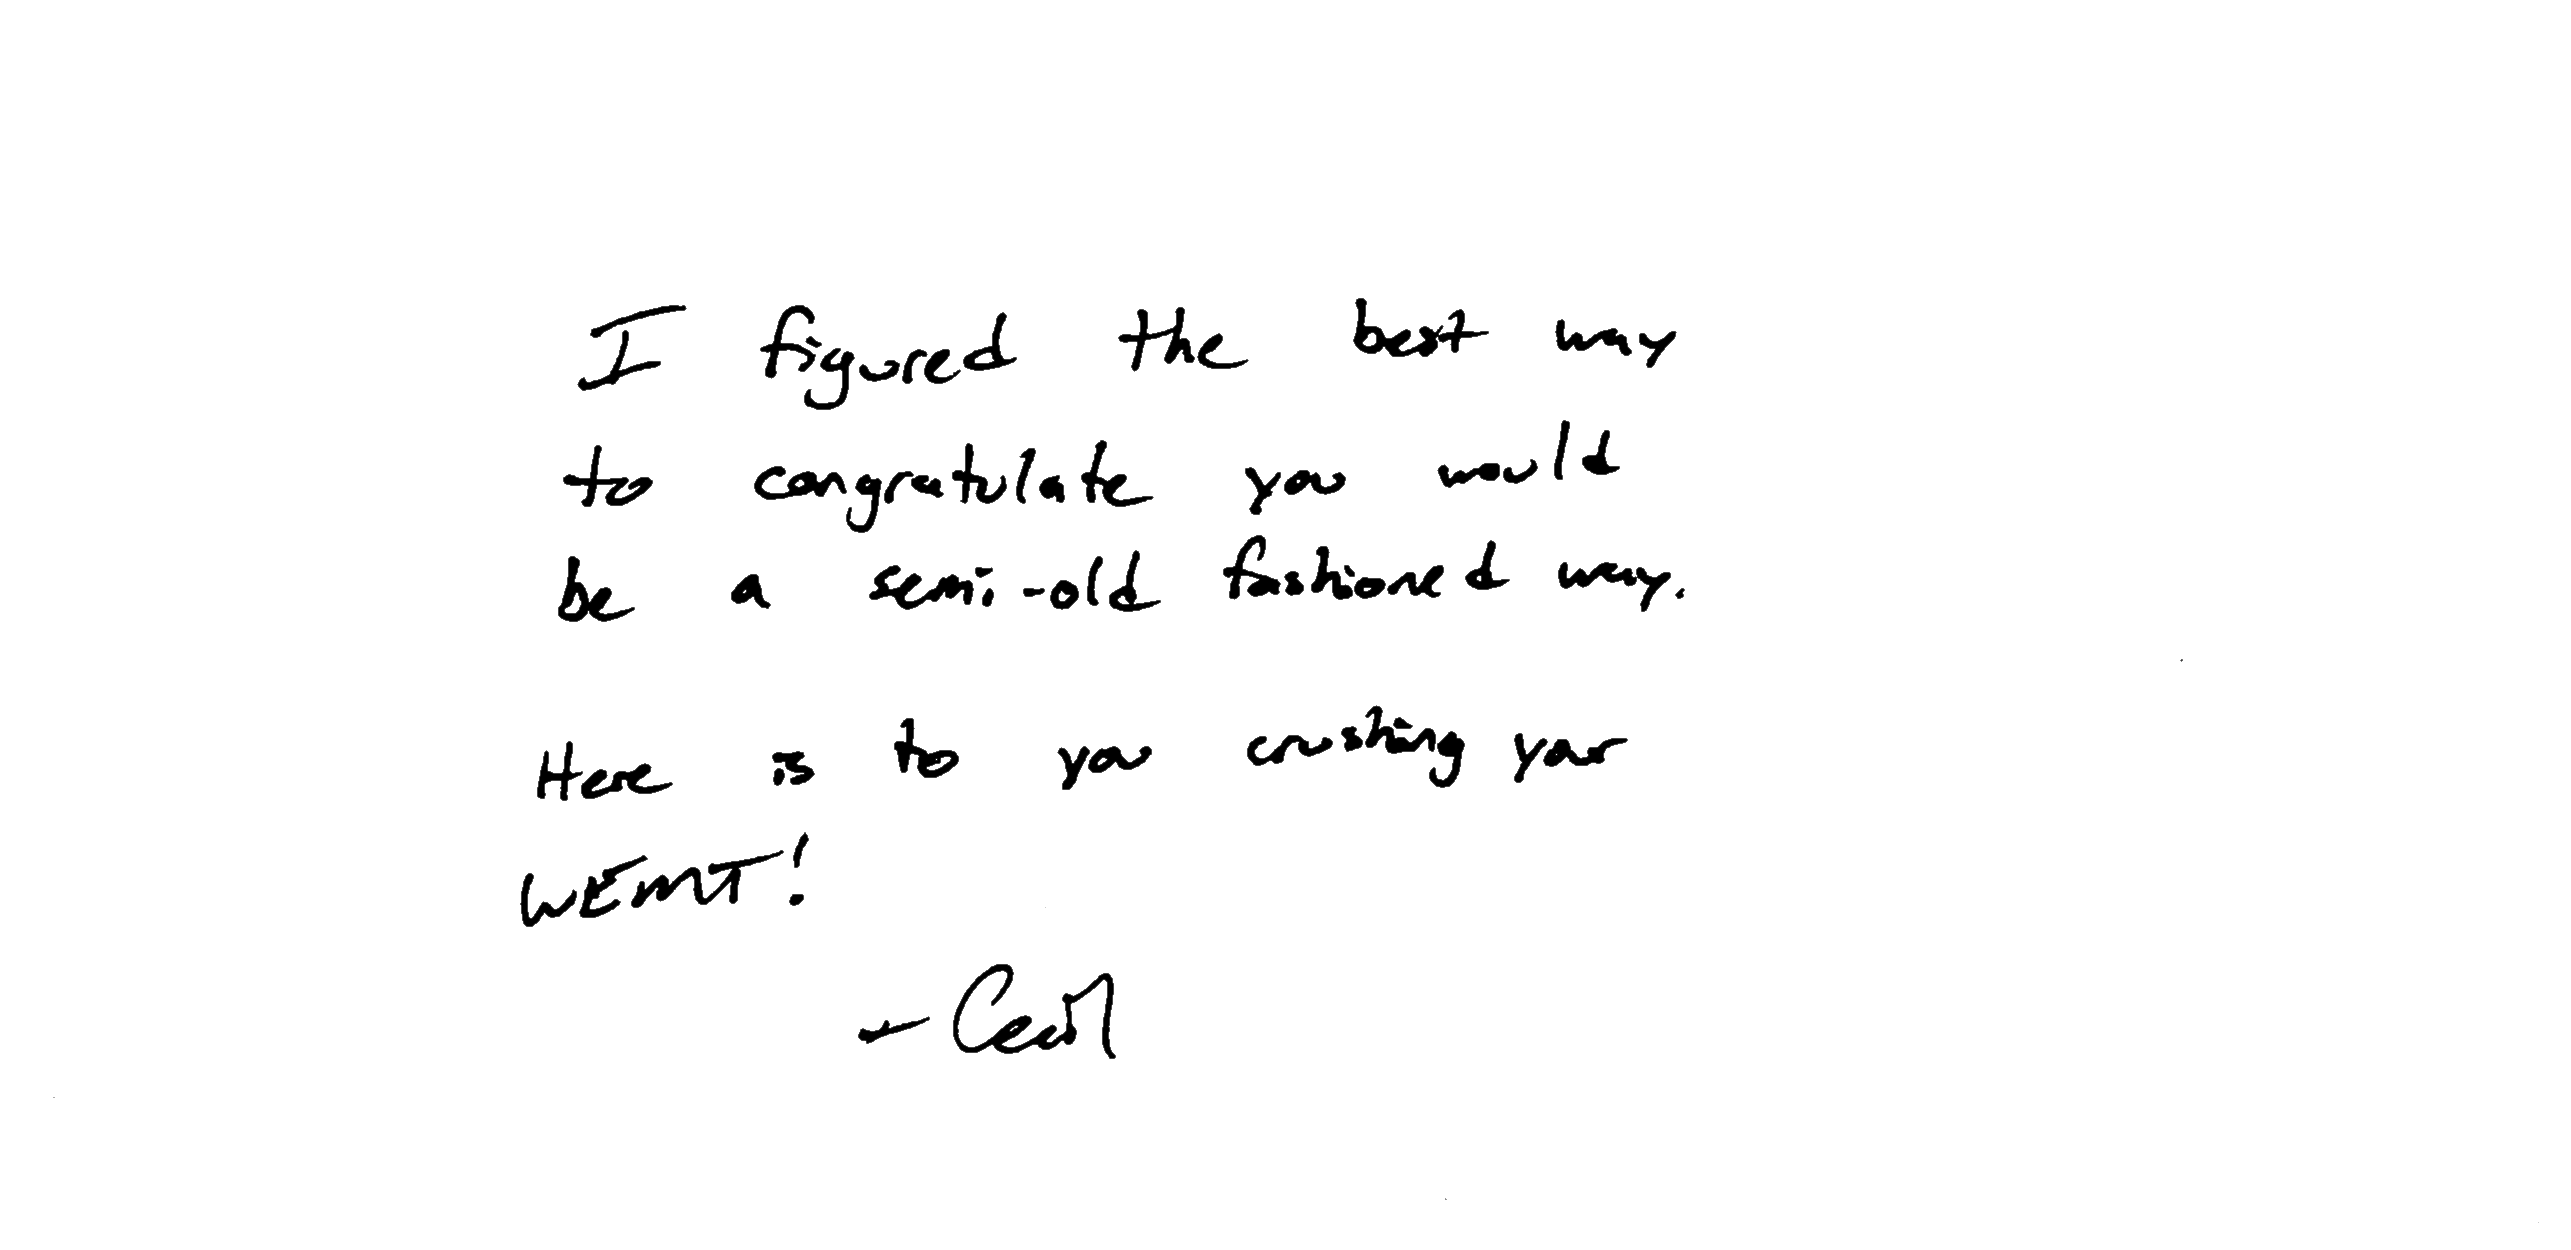 I figured the best way
to congratulate you would
be a semi-old fashioned way.
Here is to you crushing your
WEMT!
- Cecil